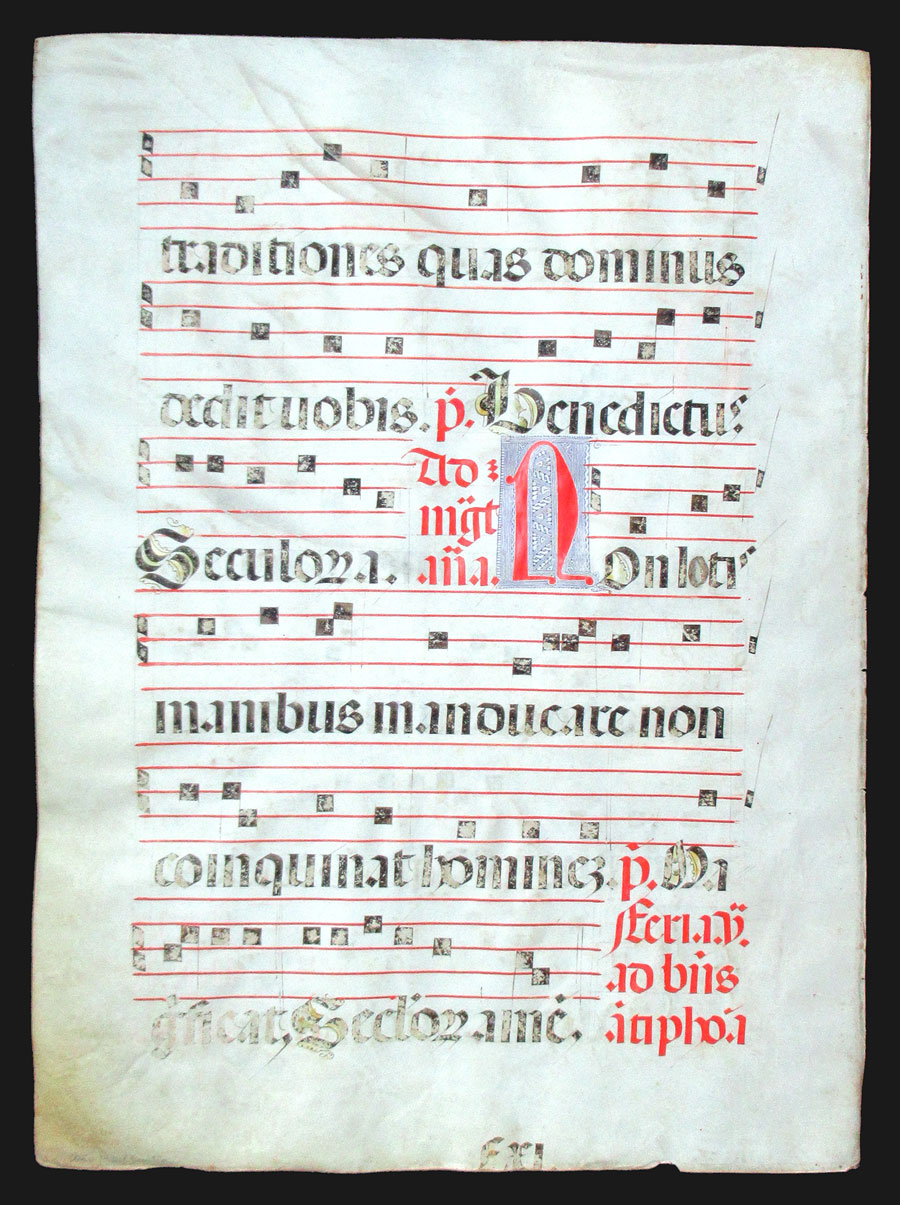 traditiones quas dominus
dedit uobis. p̄. Benedictus
Ad
mḡt
Seculorꝝ a. an̄a. Non lotis
manibus manducare non
coinquinat hominez. p̄. Ma
Feria.v.
ad bn̄s
gn̄ficat, Seclorꝝ amē. ātipho.a